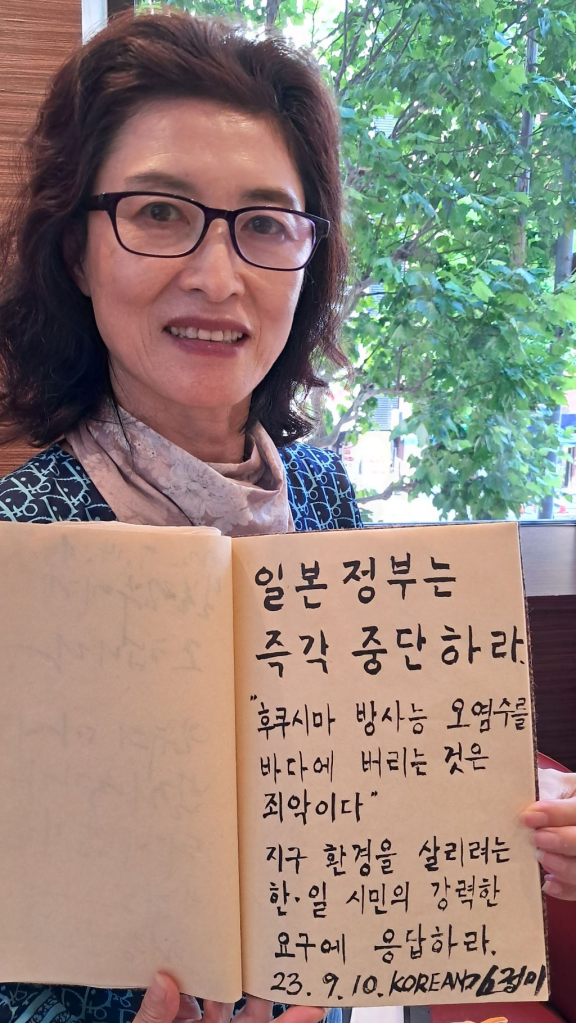 일본 정부는
즉각 중단하라.
"후쿠시마 방사능 오염수를
바다에 버리는 것은
죄악이다"
지구 환경을 살리려는
한·일 시민의 강력한
요구에 응답하라.
23. 9. 10. KOREAN